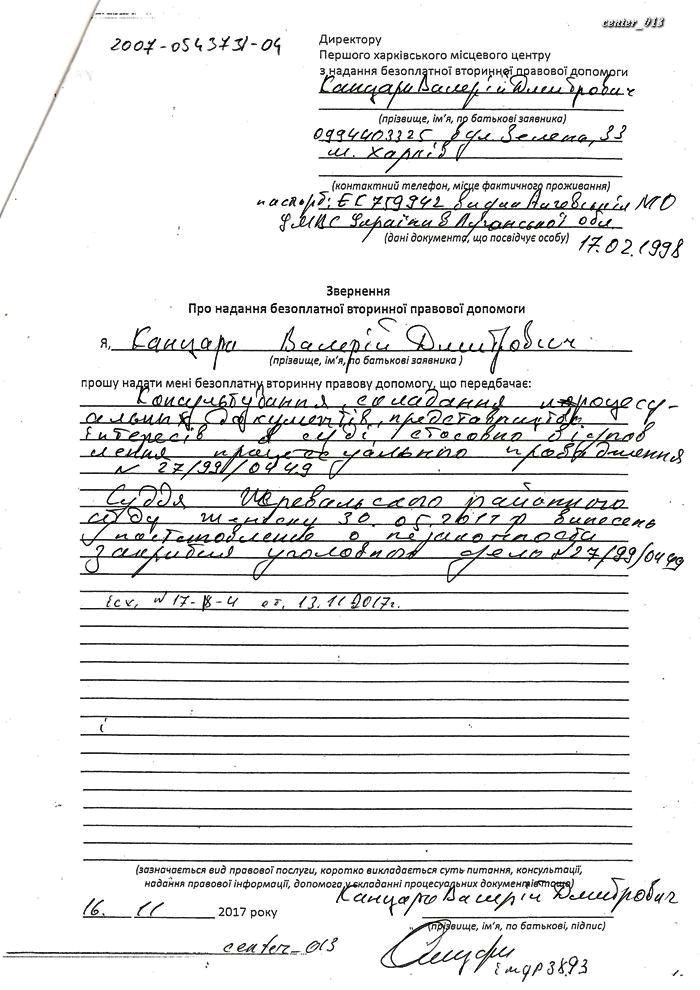 center_013
2007-0543731-04
Директору
Першого харківського місцевого центру
з надання безоплатної вторинної правової допомоги
Канцара Валерій Дмитрович
(прізвище, ім'я, по батькові заявника)
0994403325, вул Зелена, 33
м. Харків
(контактний телефон, місце фактичного проживання)
паспорт: ЕС 759942 МО
УМВС України в Луганської обл
(дані документа, що посвідчує особу) 17.02.1998
Звернення
Про надання безоплатної вторинної правової допомоги
я, Канцара Валерій Дмитрович
(прізвище, ім'я, по батькові заявника )
прошу надати мені безоплатну вторинну правову допомогу, що передбачає:
Консультування, складання процесу-
альних документів, представництво
інтересів в суді, стосовно віднов
лення процессуального провадження
N 27/99/0449
Суддя Перевальского районного
суду 30.05.2017р
постановление о незаконности
закрития уголовного дело N27/99/0449
Исх. N 17-В-4 от. 13.11.2017г.
(зазначається вид правової послуги, коротко викладається суть питання, консультації,
надання правової інформації, допомога у складанні процесуальних документів тощо)
Канцара Валерій Дмитрович
16. 11 2017 року
(прізвище, ім'я, по батькові, підпис)
center_013